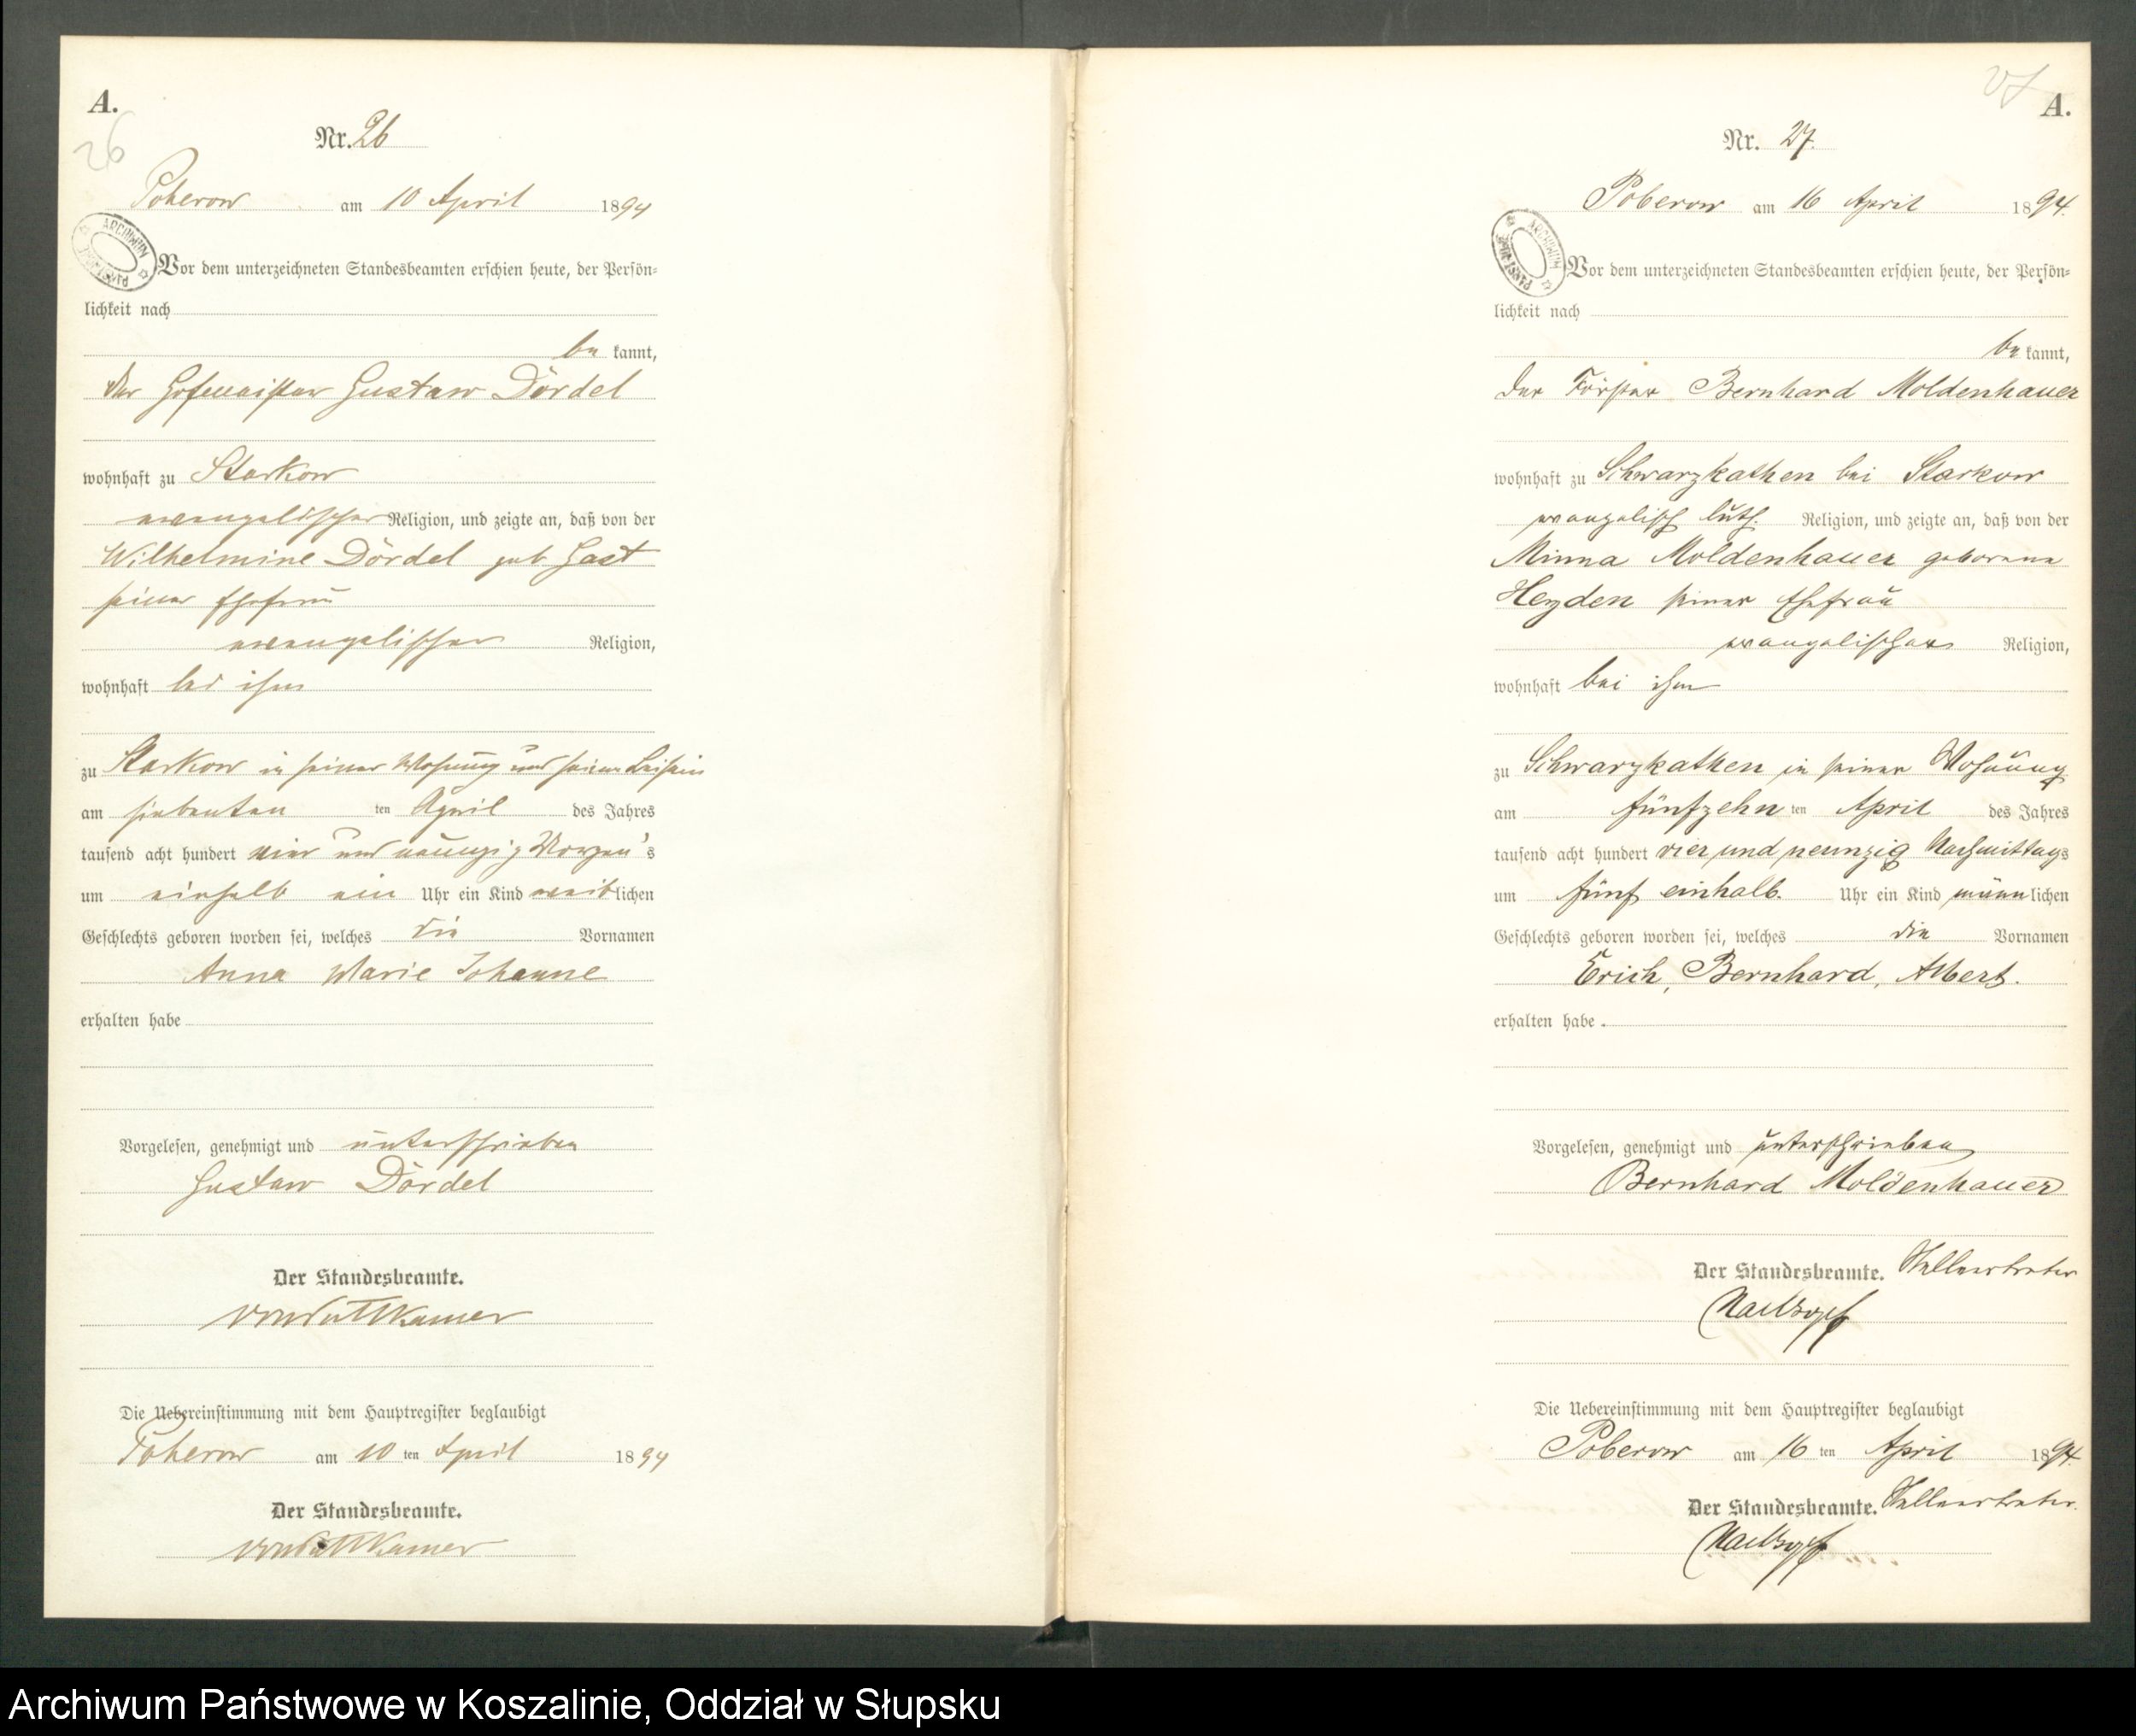 A.
26
Nr. 26
Poberow am 10 April 1894
ARCHIWUM
Vor dem unterzeichneten Standesbeamten erschien heute, der Persön-
lichkeit nach
be kannt,
der Hofmeister Gustaw Dördel
wohnhaft zu Starkow
evangelischer Religion, und zeigte an, daß von der
Wilhelmine Dördel geb Gast
seiner Ehefrau
evangelischer Religion,
wohnhaft bei ihm
zu Starkow in seiner Wohnung und seinem Beisein
am siebenten ten April des Jahres
tausend acht hundert vier und neunzig Morgen's
um einhalb ein Uhr ein Kind weiblichen
Geschlechts geboren worden sei, welches die Vornamen
Anna Marie Johanne
erhalten habe
Vorgelesen, genehmigt und unterschrieben
Gustaw Dördel
Der Standesbeamte.
von Puttkamer
Die Uebereinstimmung mit dem Hauptregister beglaubigt
Poberow am 10 ten April 1894
Der Standesbeamte.
von Puttkamer
27
A.
Nr. 27.
Poberow am 16 April 1894.
ARCHIWUM
Vor dem unterzeichneten Standesbeamten erschien heute, der Persön-
lichkeit nach
be kannt,
der Förster Bernhard Moldenhauer
wohnhaft zu Schwarzkathen bei Starkow
evangelisch luth. Religion, und zeigte an, daß von der
Minna Moldenhauer geborene
Heyden seiner Ehefrau
evangelischer Religion,
wohnhaft bei ihm
zu Schwarzkathen in seiner Wohnung
am fünfzehn ten April des Jahres
tausend acht hundert vier und neunzig Nachmittags
um fünf einhalb. Uhr ein Kind männlichen
Geschlechts geboren worden sei, welches die Vornamen
Erich, Bernhard, Albert.
erhalten habe.
Vorgelesen, genehmigt und unterschrieben
Bernhard Moldenhauer
Der Standesbeamte. Stellvertreter
Die Uebereinstimmung mit dem Hauptregister beglaubigt
Poberow am 16 ten April 1894.
Der Standesbeamte. Stellvertreter.
Archiwum Państwowe w Koszalinie, Oddział w Słupsku